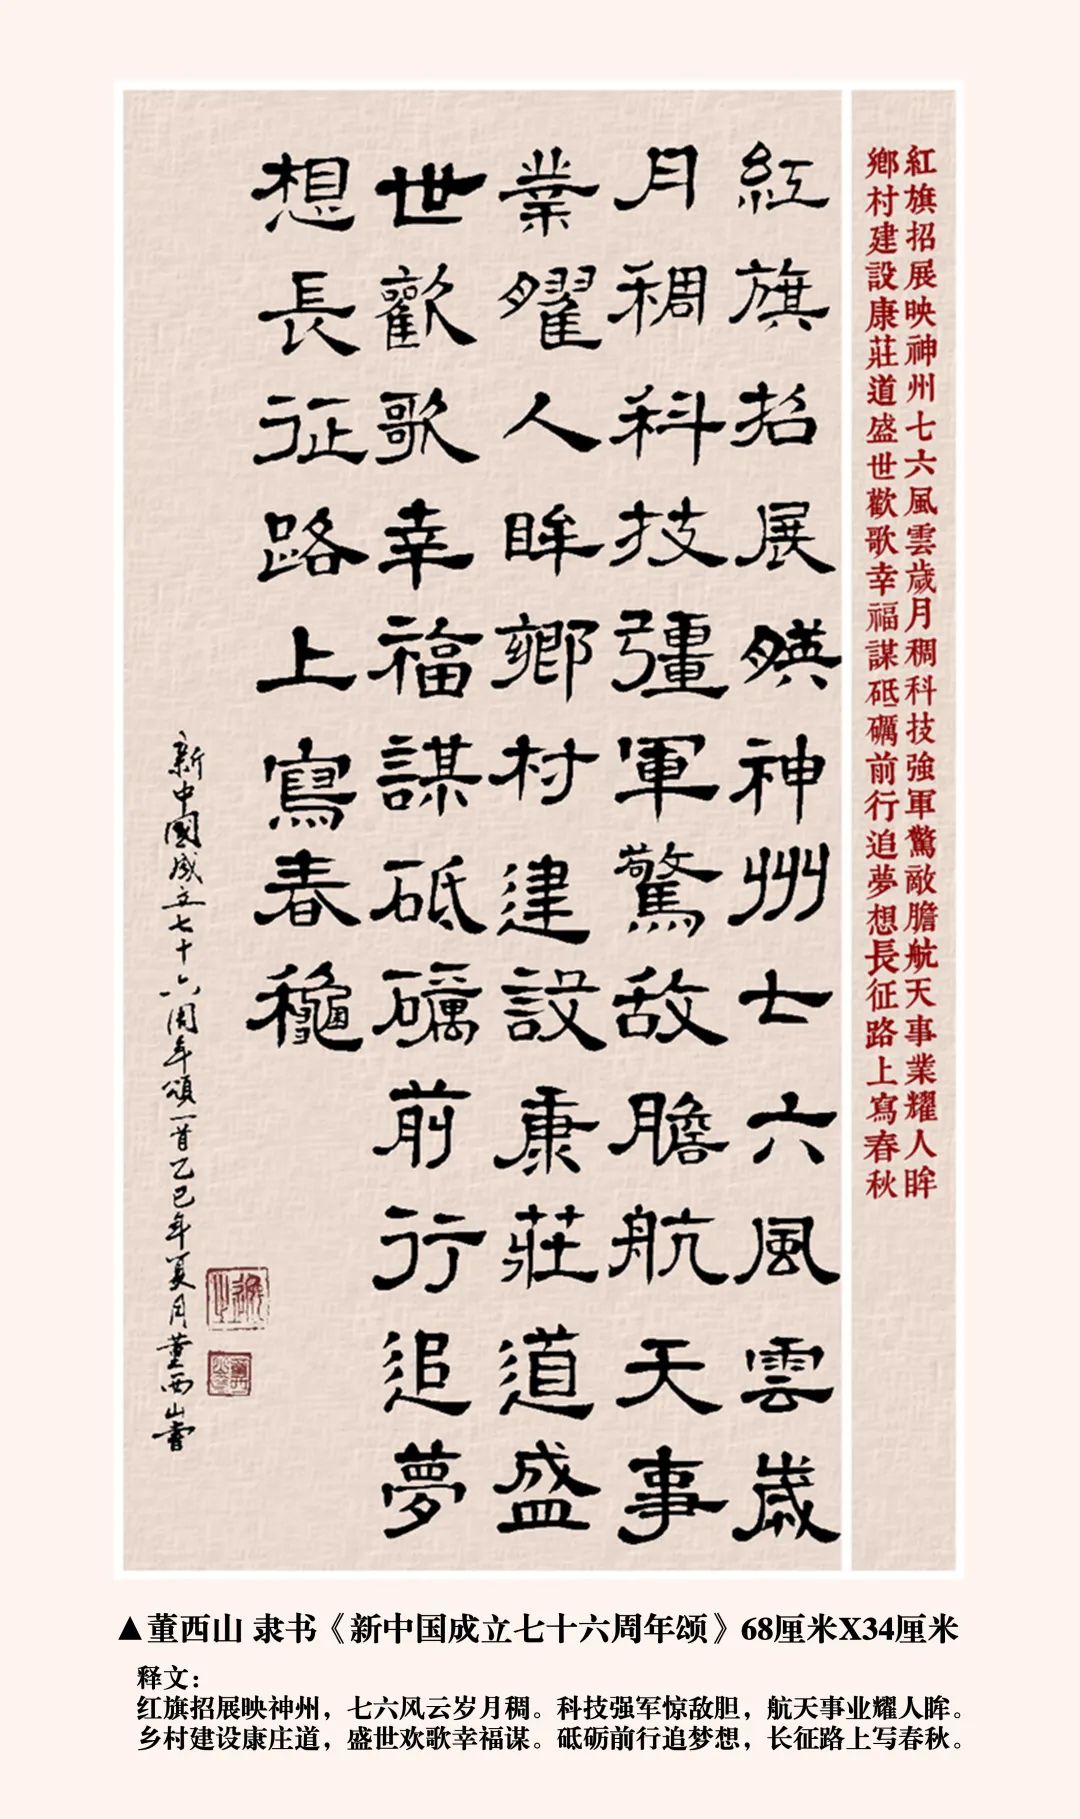 紅旗招展映神州七六風雲歲月稠科技強軍驚敵膽航天事業耀人眸
鄉村建設康莊道盛世歡歌幸福謀砥礪前行追夢想長征路上寫春秋
紅旗招展暎神州七六風雲歲
月稠科技彊軍驚敵膽航天事
業耀人眸鄉村建設康莊道盛
世歡歌幸福謀砥礪前行追夢
想長征路上寫春穐
新中國成立七十六周年頌一首乙巳年夏月董西山書
▲董西山 隶书《新中国成立七十六周年颂》68厘米X34厘米
释文：
红旗招展映神州，七六风云岁月稠。科技强军惊敌胆，航天事业耀人眸。
乡村建设康庄道，盛世欢歌幸福谋。砥砺前行追梦想，长征路上写春秋。